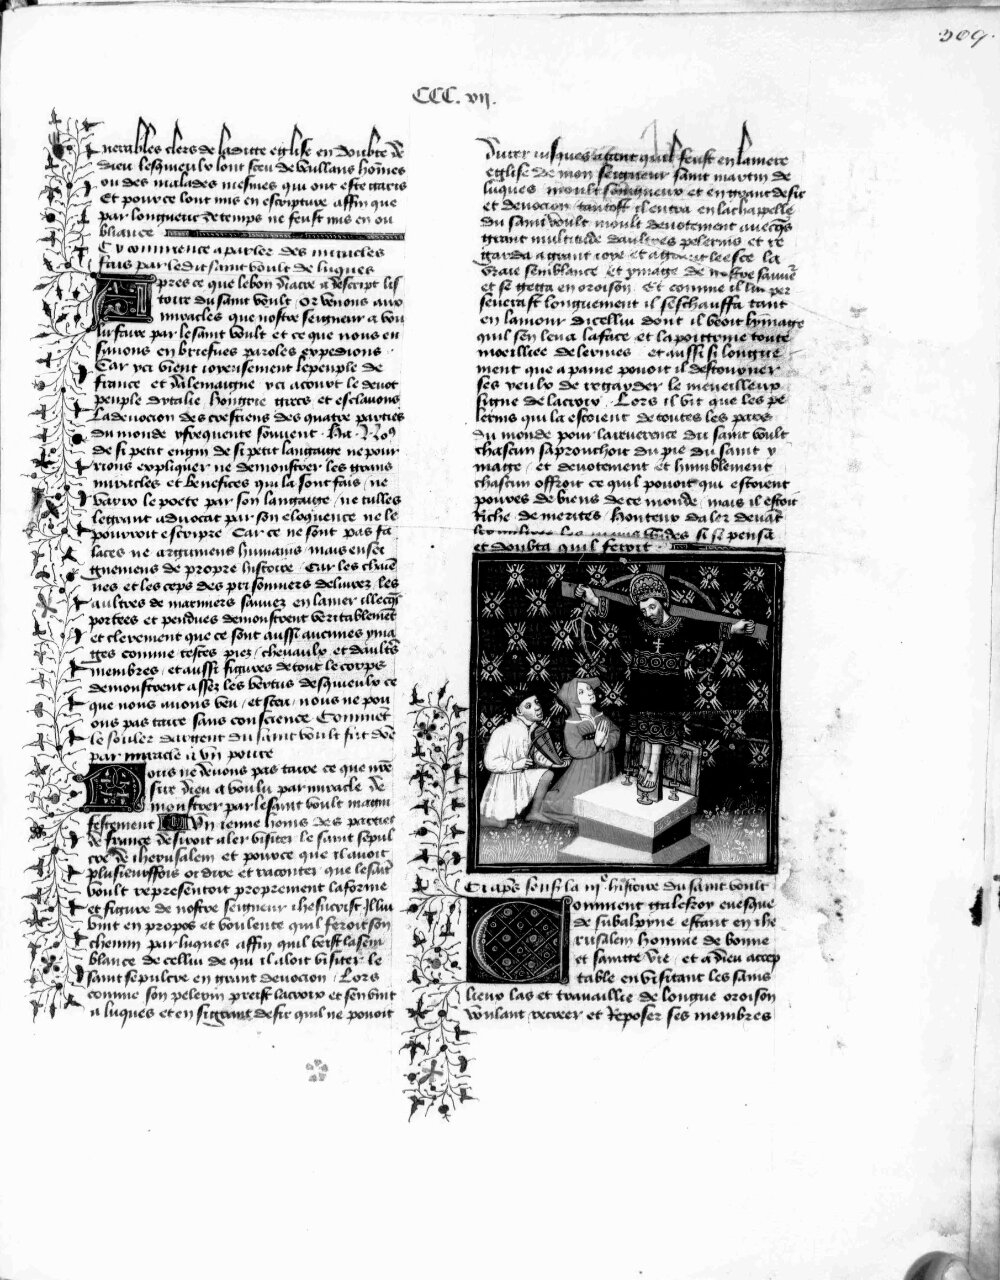 309.
CCC. vij.
nerables clers de ladicte eglise en doubte de
dieu lesquieulx lont sceu de vaillans hommes
ou des malades mesmes qui ont este garis
Et pource lont mis en escripture affin que
par longueur de temps ne feust mis en ou
bliance
Cy commence a parler des miracles
fais par ledit saint voult de luques
Apres ce que le bon diacre a descript lis
toire du saint voult . Or venons aux
miracles que nostre seigneur a vou
lu faire par le saint voult et ce que nous en
sauons en briefues paroles expedions .
Car yci vient ioyeusement le peuple de
france et dalemaigne yci acourt le deuot
peuple dytalie hongrie grecs et esclauons
La deuocion des crestiens des quatre parties
du monde y frequente souuent . Ha . No9
de si petit engin de si petit langaige ne pour
rions expliquer ne demonstrer les grans
miracles et benefices qui la sont fais / ne
varro le poete par son langaige / ne tulles
le grant aduocat par son eloquence ne le
pourroit escripre Car ce ne sont pas fa
laces ne argumens humains mais ensei
gnemens de propre histoire Car les chaie
nes et les ceps des prisonniers deliurez les
aultres de mariniers sauuez en la mer illecqs
portees et pendues demonstrent veritablement
et clerement que ce sont aussi aucunes yma
ges comme testes piez / cheuaulx et daultres
membres / et aussi figures de tout le corps
demonstrent assez les vertus desquieulx ce
que nous auons veu / et sceu / nous ne pou
ons pas taire sans conscience Comment
le souler dargent du saint voult fut done
par miracle a vn poure
Nous ne deuons pas taire ce que nre
sire dieu a voulu par miracle de
monstrer par le saint voult magni
festement Vn ienne homs des parties
de france desiroit aler visiter le saint sepul
cre de iherusalem et pource que il auoit
plusieurffois oi dire et raconter que le saint
voult representoit proprement la forme
et figure de nostre seigneur ihesucrist Il lui
vint en propos et voulente quil feroit son
chemin par luques affin quil veist la sem
blance de cellui de qui il aloit visiter le
saint sepulcre en grant deuocion . Lors
comme son pelerin preist la croix et sen vint
a luques et en si grant desir quil ne pouoit
durer iusques a tant quil feust en la mere
eglise de mon seigneur saint martin de
luques moult songneux et en grant desir
et deuocion tantost il entra en la chappelle
du saint voult moult deuotement auecqs
grant multitude daultres pelerins et re
garda a grant ioye et a grant leesce la
vraie semblance et ymage de nostre sauue
et se getta en oroison . Et comme il lui per
seuerast longuement il seschauffa tant
en lamour dicellui dont il veoit lymage
quil sen leua la face et la poittrine toute
moeillee de lermes et aussi si longue
ment que a paine pouoit il destourner
ses yeulx de regarder le merueilleux
signe de la croix . Lors il vit que les pe
lerins qui la estoient de toutes les pars
du monde pour la reuerence du saint voult
chascun saprouchoit du pie du saint y
mage / et deuotement et humblement
chascun offroit ce quil pouoit qui estoient
poures de biens de ce monde / mais il estoit
Riche de merites . Honteux daler deuant
les si se pensa
et doubta quil feroit .
Ci apres sensuit la iije histoire du saint voult
Comment galefroy euesque
de subalpyne estant en ihe
rusalem homme de bonne
et saincte vie / et a dieu accep
table en visitant les sains
lieux las et trauaillie de longue oroison
voulant recreer et Reposer ses membres